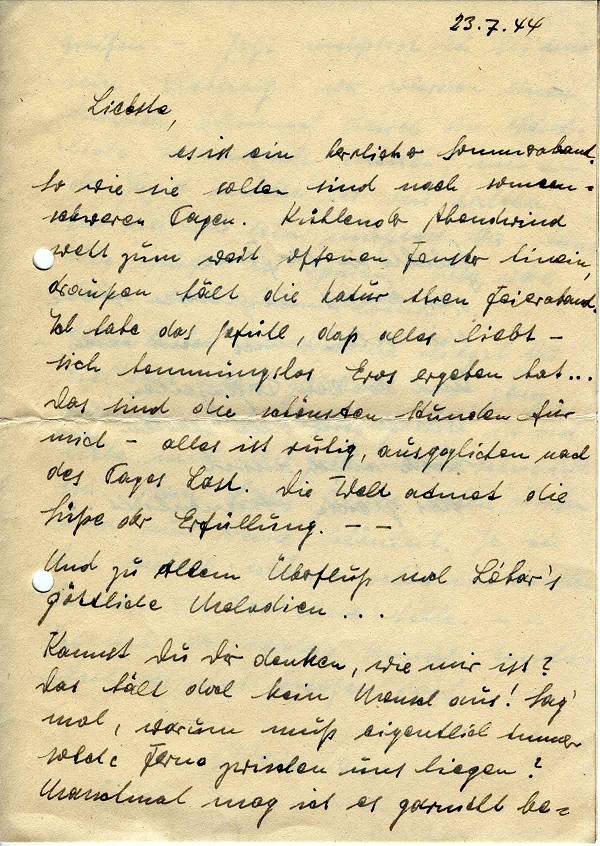 23.7.44
Liebste,
es ist ein herrlicher Sommerabend.
So wie sie selten sind nach sonnen-
schweren Tagen. Kühlender Abendwind
weht zum weit offenen Fenster hinein,
draußen hält die Natur ihren Feierabend.
Ich habe das Gefühl, daß alles liebt -
sich hemmungslos Eros ergeben hat...
Das sind die schönsten Stunden für
mich - alles ist ruhig, ausgeglichen nach
des Tages Last. Die Welt atmet die
Süße der Erfüllung. - -
Und zu allem Überfluß noch Léhar's
göttliche Melodien...
Kannst Du Dir denken, wie mir ist?
Das hält doch kein Mensch aus! Sag'
mal, warum muß eigentlich immer
solche Ferne zwischen uns liegen?
Manchmal mag ich es garnicht be-